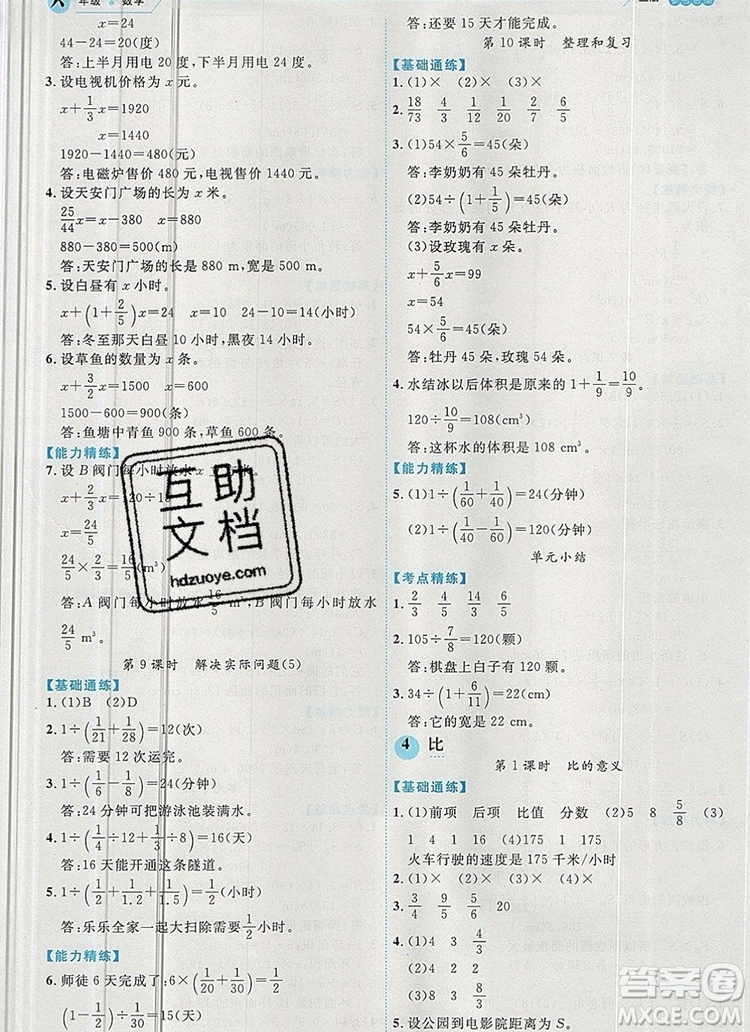 年级 数学
x=24
44-24=20(度)
答:上半月用电 20 度,下半月用电 24 度。
3. 设电视机价格为 x 元。
x+1/3x=1920
x=1440
1920-1440=480(元)
答:电磁炉售价 480 元,电视售价 1440 元。
4. 设天安门广场的长为 x 米。
25/44x=x-380 x=880
880-380=500(m)
答:天安门广场的长是 880 m,宽是 500 m。
5. 设白昼有 x 小时。
x+(1+2/5)x=24 x=10 24-10=14(小时)
答:冬至那天白昼 10 小时,黑夜 14 小时。
6. 设草鱼的数量为 x 条。
x+3/2x=1500 x=600
1500-600=900(条)
答:鱼塘中青鱼 900 条,草鱼 600 条。
【能力精练】
7. 设 B 阀门每小时放水 x
x+2/3x=120÷
x=24/5
24/5×2/3=
答:A 阀门每小时放水 16/5 B 阀门每小时放水
24/5 m³。
第 9 课时 解决实际问题(5)
【基础通练】
1. (1)B (2)D
2. 1÷(1/21+1/28)=12(次)
答:需要 12 次运完。
3. 1÷(1/6-1/8)=24(分钟)
答:24 分钟可把游泳池装满水。
4. 1÷(1/24÷2+1/8÷3)=16(天)
答:16 天能开通这条隧道。
5. 1÷(1/2÷2+1/3÷2+1/2)
(小时)
答:乐乐全家一起大扫除需要
小时。
【能力精练】
6. 师徒 6 天完成了:6×(1/20+1/30)=1/2
(1-1/2)÷1/30=15(天)
答:还要 15 天才能完成。
第 10 课时 整理和复习
【基础通练】
1. (1)× (2)× (3)×
2. 18/73 3/4 1/12 1/20 2/7 6/5
3. (1)54×5/6=45(朵)
答:李奶奶有 45 朵牡丹。
(2)54÷(1+1/5)=45(朵)
答:李奶奶有 45 朵牡丹。
(3)设玫瑰有 x 朵。
x+5/6x=99
x=54
54×5/6=45(朵)
答:牡丹 45 朵,玫瑰 54 朵。
4. 水结冰以后体积是原来的 1+1/9=10/9。
120÷10/9=108(cm³)
答:这杯水的体积是 108 cm³。
【能力精练】
5. (1)1÷(1/60+1/40)=24(分钟)
(2)1÷(1/40-1/60)=120(分钟)
单元小结
【考点精练】
1. 2/3 3/4 8/9 6/5
2. 105÷7/8=120(颗)
答:棋盘上白子有 120 颗。
3. 34÷(1+6/11)=22(cm)
答:它的宽是 22 cm。
4 比
第 1 课时 比的意义
【基础通练】
1. (1)前项 后项 比值 分数 (2)5 8 5/8 (3)
1 4 1 16 (4)175 1 175
火车行驶的速度是 175 千米/小时
2. × × √ × ×
3. 3/4 2 4 9/8
4. (1)2 3 4/9
(2)4 4/9
5. 设公园到电影院距离为 S。
互助文档
hdzuoye.com
答案圈
MXQE.COM